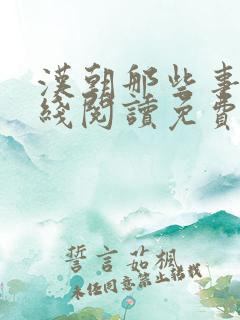 漢朝那些事
綫閱讀免費
誓言茹楓
未任同意禁止轉載